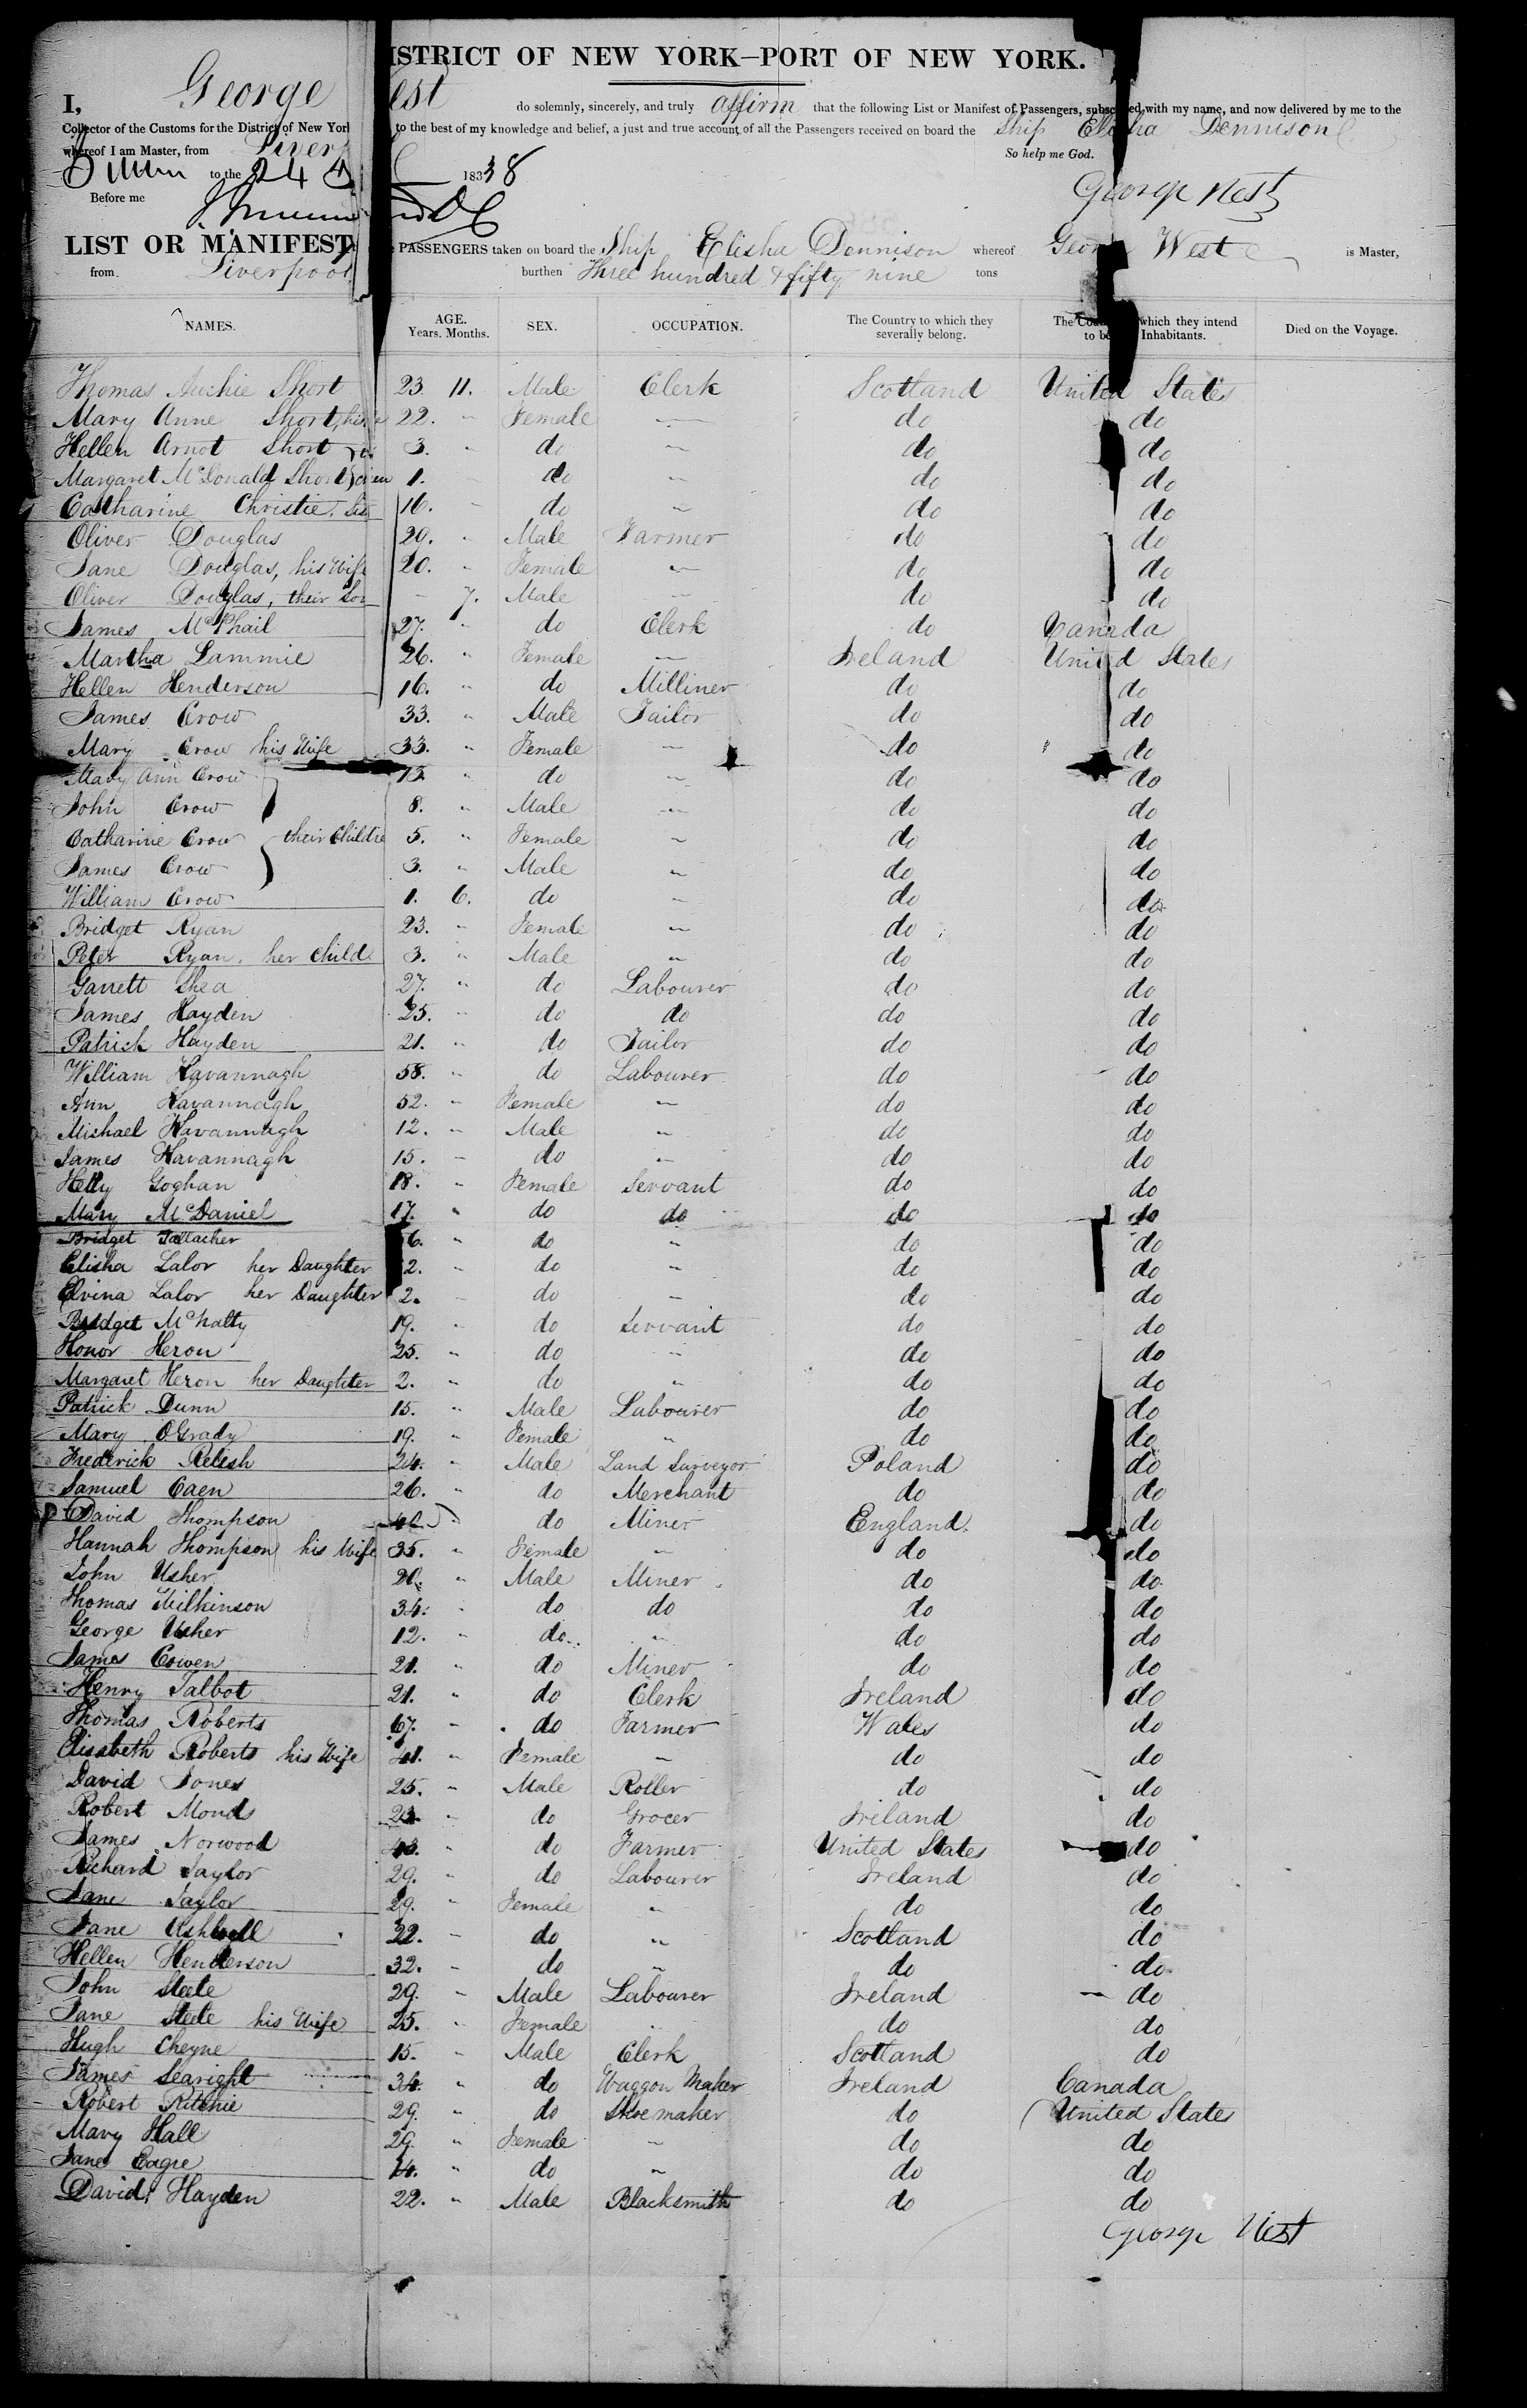 ISTRICT OF NEW YORK—PORT OF NEW YORK.
I, George est do solemnly, sincerely, and truly affirm that the following List or Manifest of Passengers, subsc ed with my name, and now delivered by me to the
Collector of the Customs for the District of New York to the best of my knowledge and belief, a just and true account of all the Passengers received on board the Ship Elisha Dennison
whereof I am Master, from Liverp So help me God.
to the 24 1838
Before me George West
LIST OR MANIFEST PASSENGERS taken on board the Ship Elisha Dennison whereof George West is Master,
from Liverpool burthen Three hundred & fifty nine tons
NAMES. AGE. Years. Months. SEX. OCCUPATION. The Country to which they severally belong. The Cou which they intend to be Inhabitants. Died on the Voyage.
Thomas Short 23 11. Male Clerk Scotland United States
Mary Anne Short, his 22. " Female — do do
Hellen Arnot Short 3. " do " do do
Margaret McDonald Short 1. do " do do
Catharine Christie, Sis 16. do " do do
Oliver Douglas 29. " Male Farmer do do
Jane Douglas, his Wife 20. " Female " do do
Oliver Douglas, their Son - 7. Male do do
James McPhail 27. " do Clerk do Canada
Martha Lammie 26. " Female — Ireland United States
Hellen Henderson 16. " do Milliner do do
James Crow 33. " Male Tailor do do
Mary Crow his Wife 33. " Female " do do
Mary Ann Crow 13 " do " do do
John Crow 8. " Male " do do
Catharine Crow their Childre 5. " Female " do do
James Crow 3. " Male " do do
William Crow 1. 6. do " do do
Bridget Ryan 23. " Female " do do
Peter Ryan, her child 3. " Male " do do
Garrett Shea 27. " do Labourer do do
James Hayden 25. " do do do do
Patrick Hayden 21. " do Tailor do do
William Kavannagh 58. " do Labourer do do
Ann Kavannagh 52. " Female " do do
Michael Kavannagh 12. " Male " do do
James Kavannagh 15. " do " do do
Goghan 18. " Female Servant do do
Mary McDaniel 17. " do do do do
Bridget 6. " do " do do
Elisha Lalor her Daughter 2. " do " do do
Elvina Lalor her Daughter 2. do " do do
Bridget McNalty 19. " do Servant do do
Honor Heron 25. " do " do do
Margaret Heron her Daughter 2. " do " do do
Patrick Dunn 15. " Male Labourer do do
Mary OGrady 19. " Female " do do
Frederick Relish 24. " Male Land Surveyor Poland do
Samuel Caen 26. " do Merchant do do
David Thompson " do Miner England. do
Hannah Thompson his Wife 35. " Female " do do
John Usher 20. " Male Miner do do
Thomas Wilkinson 34. " do do do do
George Usher 12. " do " do do
James Cowen 21. " do Miner do do
Henry Talbot 21. " do Clerk Ireland do
Thomas Roberts 67. " do Farmer Wales do
Elisabeth Roberts his Wife 41. " Female " do do
David Jones 25. " Male Roller do do
Robert Mond 23 " do Grocer Ireland do
James Norwood 43. " do Farmer United States do
Richard Taylor 29. " do Labourer Ireland do
Jane Taylor 29. " Female " do do
Jane 22. " do " Scotland do
Hellen Henderson 32. " do " do do
John Steele 29. " Male Labourer Ireland do
Jane Steele his Wife 25. " Female do do
Hugh Cheyne 15. " Male Clerk Scotland do
James Searight 34. " do Waggon Maker Ireland Canada
Robert Ritchie 29. " do Shoemaker do United States
Mary Hall 29. " Female " do do
Jane Eagre 14. " do " do do
David Hayden 22. " Male Blacksmith do do
George West